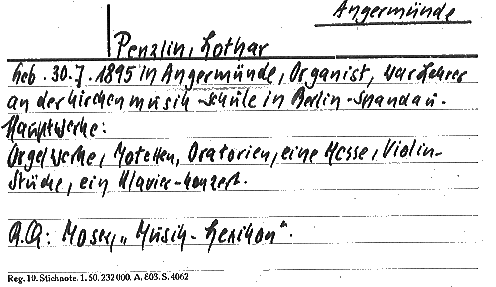 Angermünde
Penzlin, Lothar
Geb. 30.7.1895 in Angermünde, Organist, war Lehrer
an der Kirchenmusik-schule in Berlin-Spandau.
Hauptwerke:
Orgelwerke, Motetten, Oratorien, eine Messe, Violin-
Stücke, ein Klavier-konzert.
A.Q: Moser, "Musik-Lexikon".
Reg. 10. Stichnote. 1. 50. 232000. A. 803. S. 4062